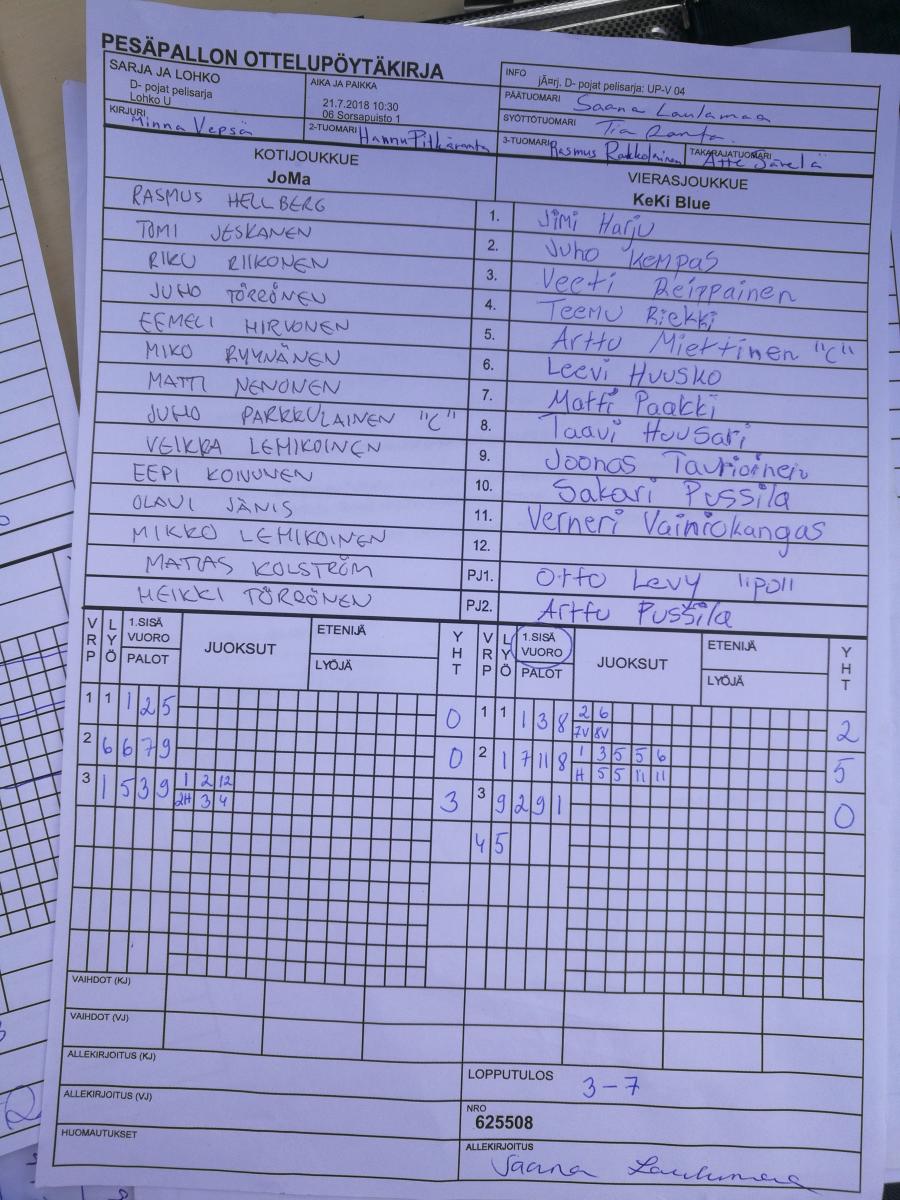 PESÄPALLON OTTELUPÖYTÄKIRJA
SARJA JA LOHKO
D- pojat pelisarja
Lohko U
AIKA JA PAIKKA
21.7.2018 10:30
06 Sorsapuisto 1
INFO
jÃ¤rj. D- pojat pelisarja: UP-V 04
PÄÄTUOMARI Saana Laulamaa
SYÖTTÖTUOMARI Tia Ranta
KIRJURI Minna Vepsä
2-TUOMARI Hannu Pitkäranta
3-TUOMARI Rasmus Rakkolainen
TAKARAJATUOMARI Atte Järvelä
KOTIJOUKKUE
JoMa
VIERASJOUKKUE
KeKi Blue
RASMUS HELLBERG 1. Jimi Harju
TOMI JESKANEN 2. Juho Kempas
RIKU RIIKONEN 3. Veeti Reippainen
JUHO TÖRRÖNEN 4. Teemu Riekki
EEMELI HIRVONEN 5. Arttu Miettinen "C"
MIKO RYYNÄNEN 6. Leevi Huusko
MATTI NENONEN 7. Matti Paakki
JUHO PARKKULAINEN "C" 8. Taavi Huusari
VEIKKA LEMIKOINEN 9. Joonas Taurioinen
EEPI KOIVUNEN 10. Sakari Pussila
OLAVI JÄNIS 11. Verneri Vainiokangas
MIKKO LEMIKOINEN 12.
MATIAS KOLSTRÖM PJ1. Otto Levy "pj1"
HEIKKI TÖRRÖNEN PJ2. Arttu Pussila
VRP LYÖ 1.SISÄ VUORO PALOT JUOKSUT ETENIJÄ LYÖJÄ YHT VRP LYÖ 1.SISÄ VUORO PALOT JUOKSUT ETENIJÄ LYÖJÄ YHT
1 1 1 2 5 0 1 1 1 3 8 2 6 2
7V 8V
2 6 6 7 9 0 2 1 7 11 8 1 3 5 5 6 5
H 5 5 11 11
3 1 5 3 9 1 2 12 3 3 9 2 9 1 0
2H 3 4
4 5
VAIHDOT (KJ)
VAIHDOT (VJ)
ALLEKIRJOITUS (KJ)
ALLEKIRJOITUS (VJ)
HUOMAUTUKSET
LOPPUTULOS 3-7
NRO
625508
ALLEKIRJOITUS
Saana Laulamaa